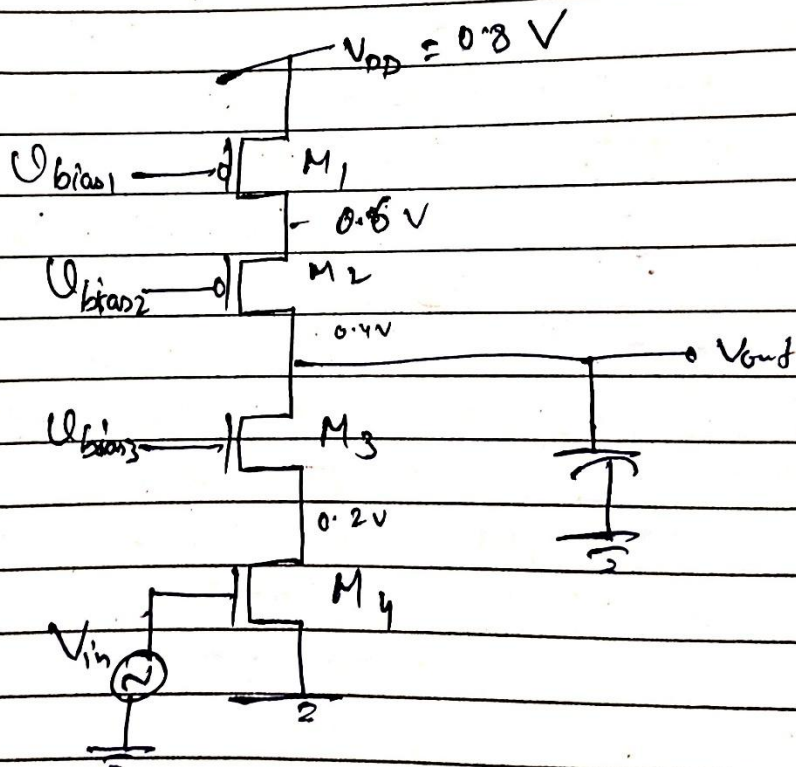 V_DD = 0.8 V
V_bias1
M1
V_bias2
M2
0.4V
Vout
V_bias3
M3
0.2V
M4
Vin